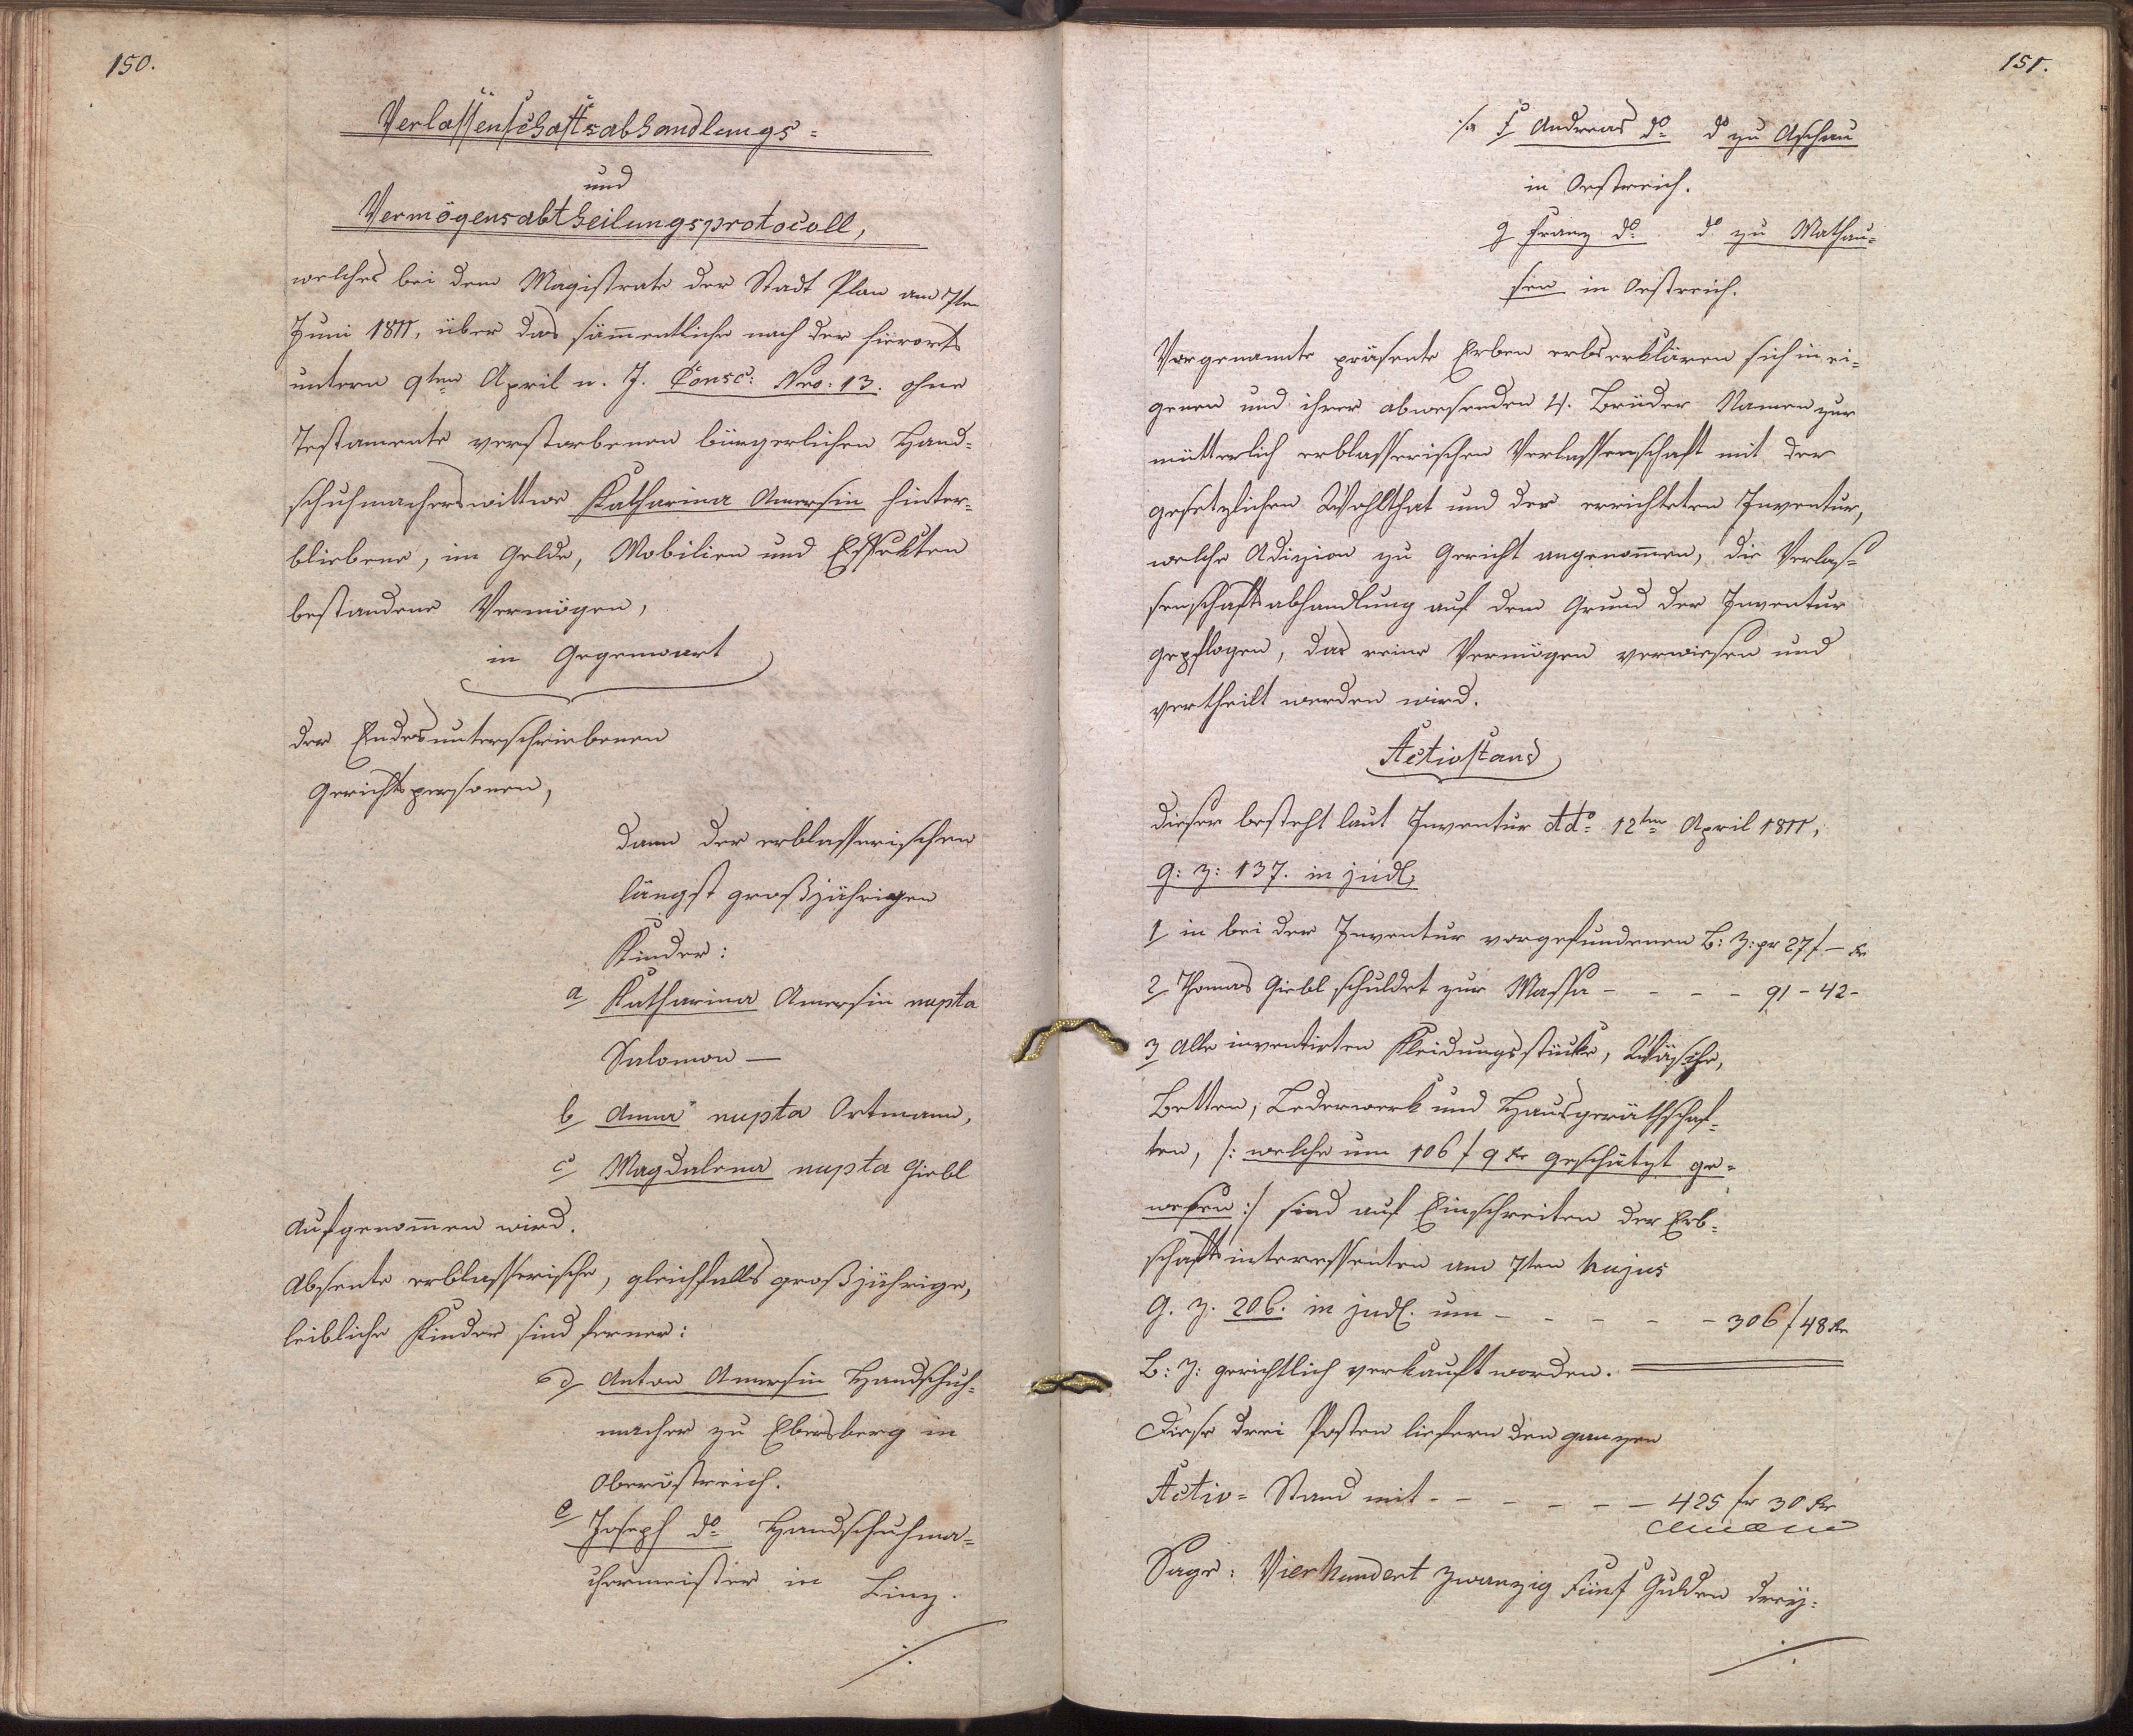 150.
Verlassenschaftsabhandlungs=
und
Vermögensabtheilungsprotocoll,
welches bei dem Magistrate der Stadt Plan am 7ten
Juni 1811, über das sämmentliche nach der hierorts
untern 9ten April n. J. Consc: Nro: 13. ohne
Testamente verstorbenen bürgerlichen Hand=
schuhmacherswittwe Katharina Amersin hinter=
bliebene, im Gelde, Mobilien und Effekten
bestandene Vermögen,
in Gegenwart
der Endesunterschriebenen
Gerichtspersonen,
dann der erblasserischen
längst großjährigen
Kinder:
a Katharina Amersin nupta
Salomon —
b Anna nupta Ortmann,
c Magdalena nupta Giebl
aufgenommen wird.
Absente erblasserische, gleichfalls großjährige,
leibliche Kinder sind ferner:
d Anton Amersin Handschuh=
macher zu Ebersberg in
Oberöstreich.
e Joseph do Handschuhma=
chermeister in Linz.
./.
151.
./. f Andreas do do zu Aschau
in Oestreich.
g Franz do do zu Mathau=
sen in Oestreich.
Vorgenannte präsente Erben erbserklären sich in ei=
genen und ihrer abwesenden 4. Brüder Namen zur
mütterlich erblasserischen Verlassenschaft mit der
gesetzlichen Wohlthat und der errichteten Inventur,
welche Adizion zu Gericht angenommen, die Verlas=
senschaftsabhandlung auf dem Grund der Inventur
gepflogen, das reine Vermögen verwiesen und
vertheilt werden wird.
Activstand
dieser besteht laut Inventur ddo 12ten April 1811,
G: Z: 137. in judl:
1 in bei der Inventur vorgefundenen B: Z: pr 27 f — kr
2 Thomas Giebl schuldet zur Massa - - - - 91 - 42 -
3 Alle inventirten Kleidungsstücke, Wäsche,
Betten, Lederwerk und Hausgeräthschaf=
ten, /: welche um 106 f 9 kr geschätzt ge=
wesen :/ sind auf Einschreiten der Erb=
schaftsinteressenten am 7ten hujus
G. Z. 206. in judl. um - - - - - 306 f 48 kr
B: Z: gerichtlich verkauft worden.
Diese drei Posten liefern den ganzen
Activ= Stand mit - - - - - - 425 fr 30 kr
Sage: Vierhundert zwanzig Fünf Gulden dreÿ=
./.